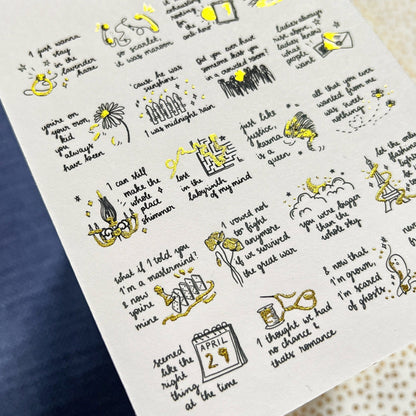 I just wanna
stay
in the
lavender
haze
so scarlet
it was maroon
did you ever have
someone kiss you
in a crowded room
ladies always
rise above,
ladies know
what people
want
you're on
your own,
kid
you
always
have been
'cause he was
sunshine,
I was midnight rain
just like
justice,
karma
is a
queen
all that you ever
wanted from me
was sweet
nothing
I can still
make the
whole
place
shimmer
lost
in the
labyrinth
of my mind
I vowed not
to fight
anymore
if we survived
the great war
you were bigger
than the
whole sky
let the
what if I told you
I'm a mastermind?
& now
you're
mine
& now that
I'm grown,
I'm scared
of ghosts
seemed
like the
right
thing
at the time
APRIL
29
I thought we had
no chance &
that's romance